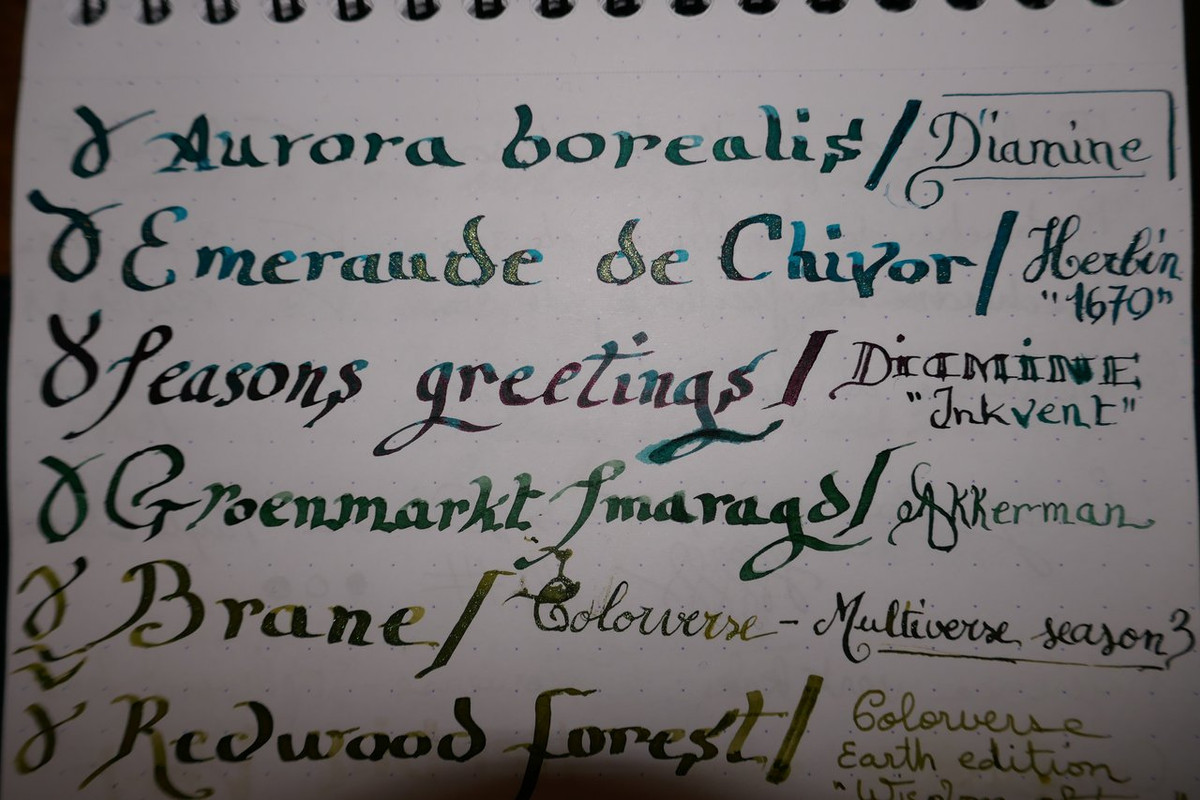 Aurora borealis / Diamine
Emeraude de Chivor / Herbin
"1670"
Seasons greetings / Diamine
"Inkvent"
Groenmarkt Smaragd / Akkerman
Brane / Colorverse - Multiverse season 3
Redwood forest / Colorverse
Earth edition